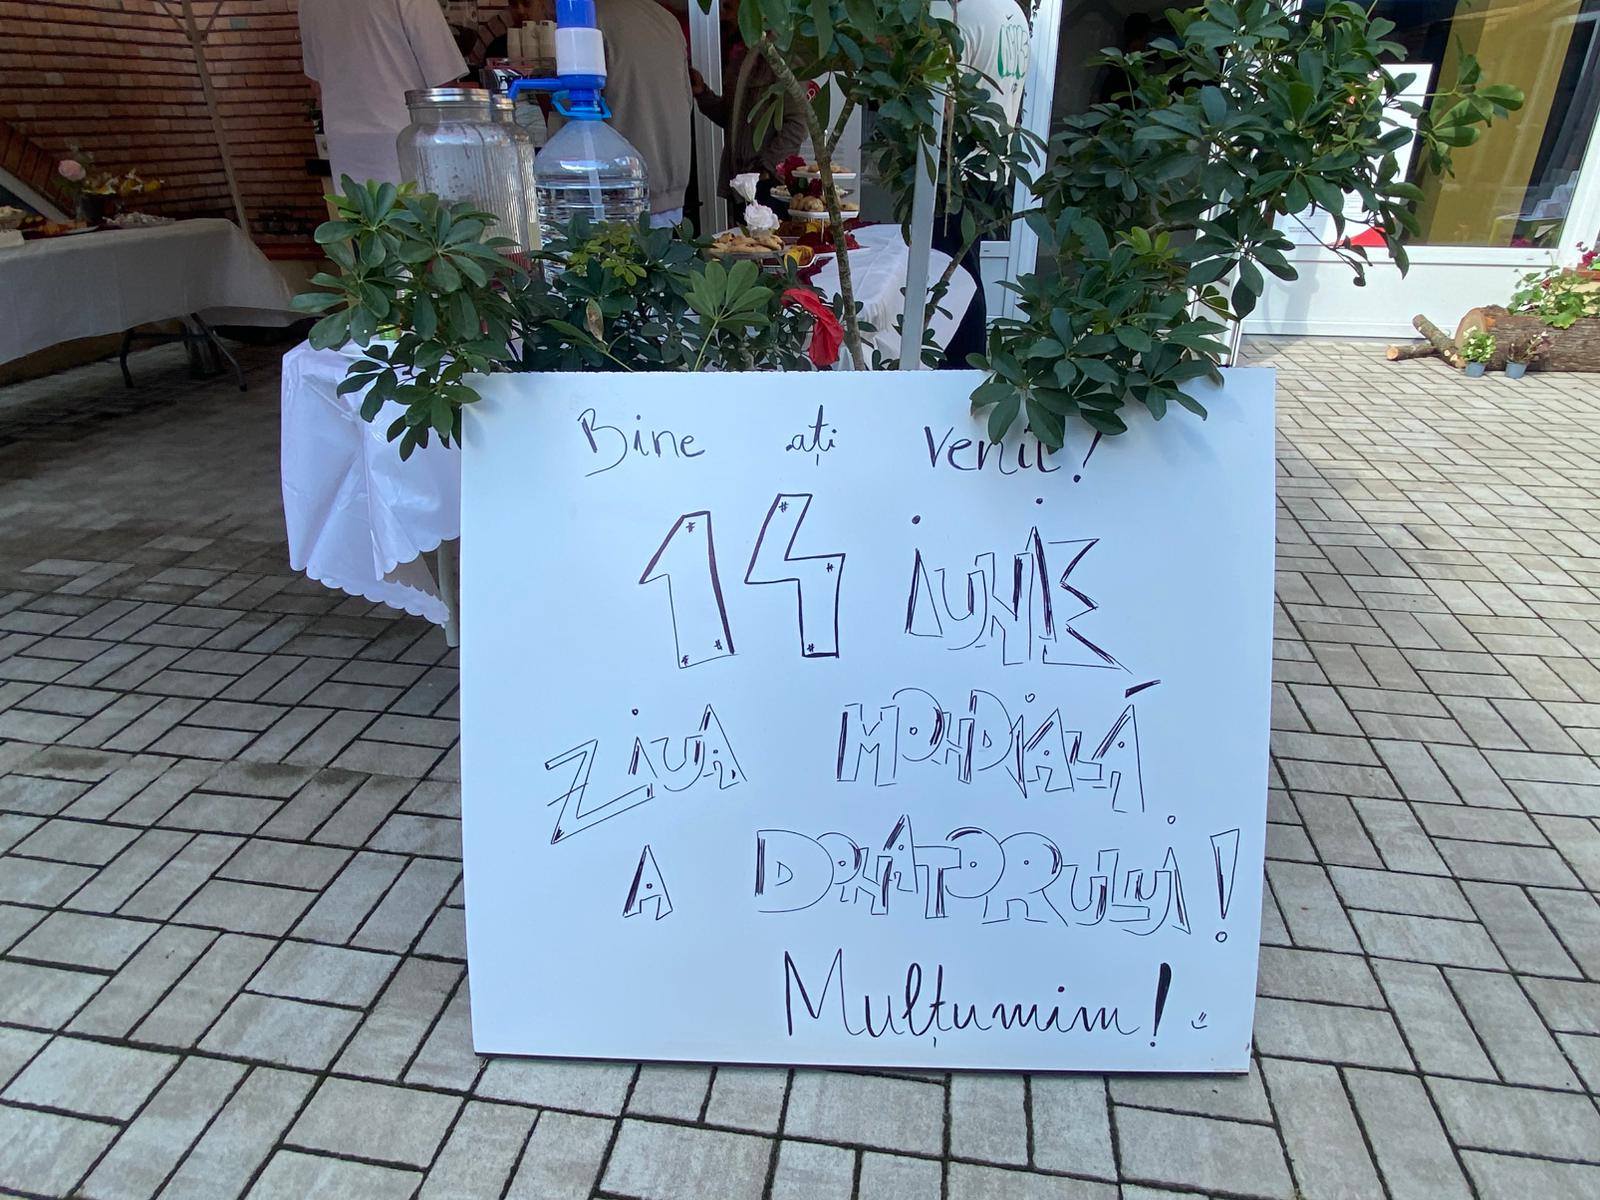 Bine ați venit!
14 IUNIE
ZIUA MONDIALĂ
A DONATORULUI!
Mulțumim!